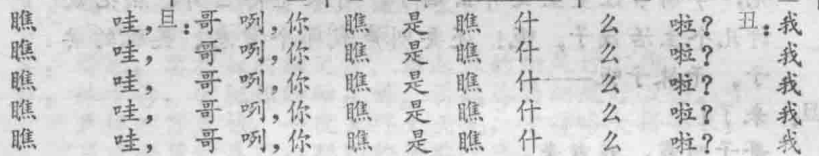 瞧哇,旦:哥咧,你瞧是瞧什么啦?丑:我
瞧哇,哥咧,你瞧是瞧什么啦?我
瞧哇,哥咧,你瞧是瞧什么啦?我
瞧哇,哥咧,你瞧是瞧什么啦?我
瞧哇,哥咧,你瞧是瞧什么啦?我